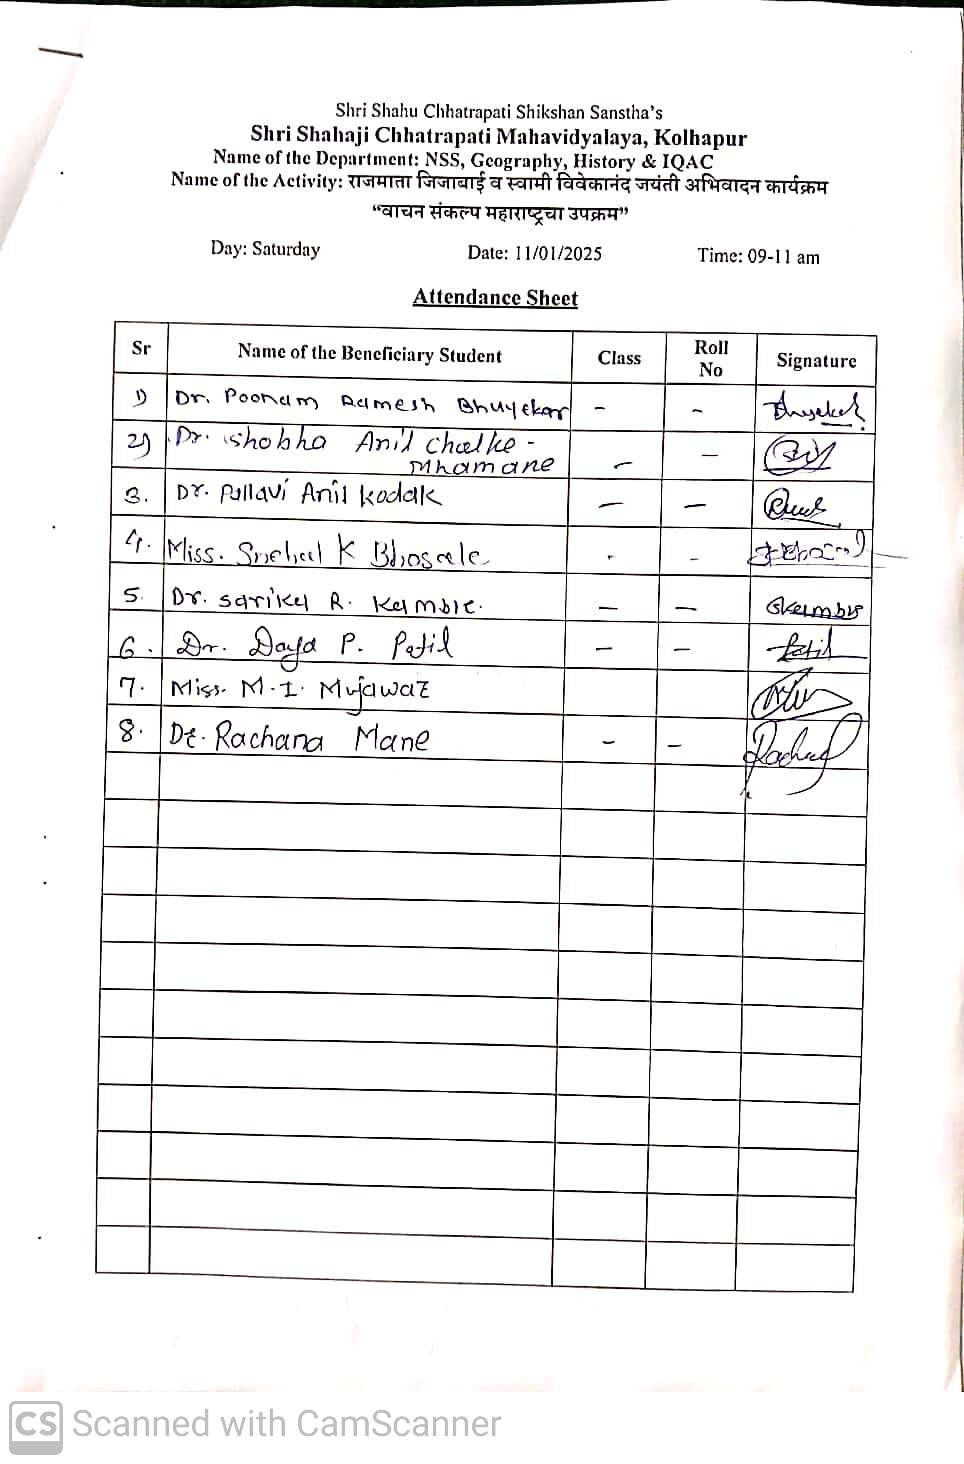 Shri Shahu Chhatrapati Shikshan Sanstha's
Shri Shahaji Chhatrapati Mahavidyalaya, Kolhapur
Name of the Department: NSS, Geography, History & IQAC
Name of the Activity: राजमाता जिजाबाई व स्वामी विवेकानंद जयंती अभिवादन कार्यक्रम
"वाचन संकल्प महाराष्ट्रचा उपक्रम"
Day: Saturday Date: 11/01/2025 Time: 09-11 am
Attendance Sheet
Sr Name of the Beneficiary Student Class Roll No Signature
1) Dr. Poonam Ramesh Bhuyekar - -
2) Dr. Shobha Anil Chalke -
Mhamane - -
3. Dr. Pallavi Anil Kodak - -
4. Miss. Snehal K Bhosale - -
5. Dr. Sarika R. Kamble. - - SKamble
6. Dr. Daya P. Patil - - Patil
7. Miss. M. I. Mujawar
8. Dr. Rachana Mane - -
CS Scanned with CamScanner